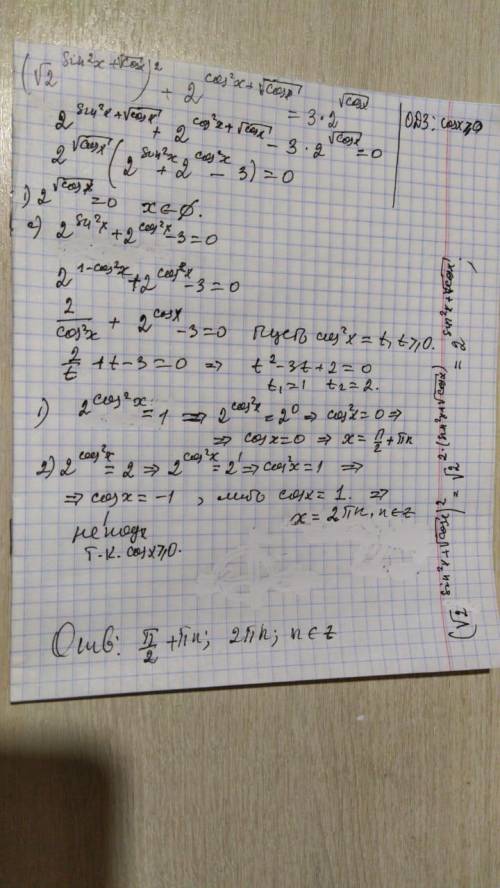 (√2^(sin²x+√cosx))² + 2^(cos²x+√cosx) = 3·2^(√cosx)
ОДЗ: cosx≥0
2^(sin²x+√cosx) + 2^(cos²x+√cosx) − 3·2^(√cosx) = 0
2^(√cosx) (2^(sin²x) + 2^(cos²x) − 3) = 0
1) 2^(√cosx) = 0 x∈∅.
2) 2^(sin²x) + 2^(cos²x) − 3 = 0
2^(1−cos²x) + 2^(cos²x) − 3 = 0
2/cos²x + 2^(cosx) − 3 = 0 пусть cos²x = t, t≥0.
2/t + t − 3 = 0 ⇒ t² − 3t + 2 = 0
t₁ = 1 t₂ = 2.
1) 2^(cos²x) = 1 ⇒ 2^(cos²x) = 2⁰ ⇒ cos²x = 0 ⇒
⇒ cosx = 0 ⇒ x = π/2 + πn
2) 2^(cos²x) = 2 ⇒ 2^(cos²x) = 2¹ ⇒ cos²x = 1 ⇒
⇒ cosx = −1, либо cosx = 1. ⇒
x = 2πn, n∈z
не подх
т.к. cosx≥0.
Отв: π/2 + πn; 2πn; n∈z
(√2^(sin²x+√cosx))² = √2^(2·(sin²x+√cosx)) = 2^(sin²x+√cosx)